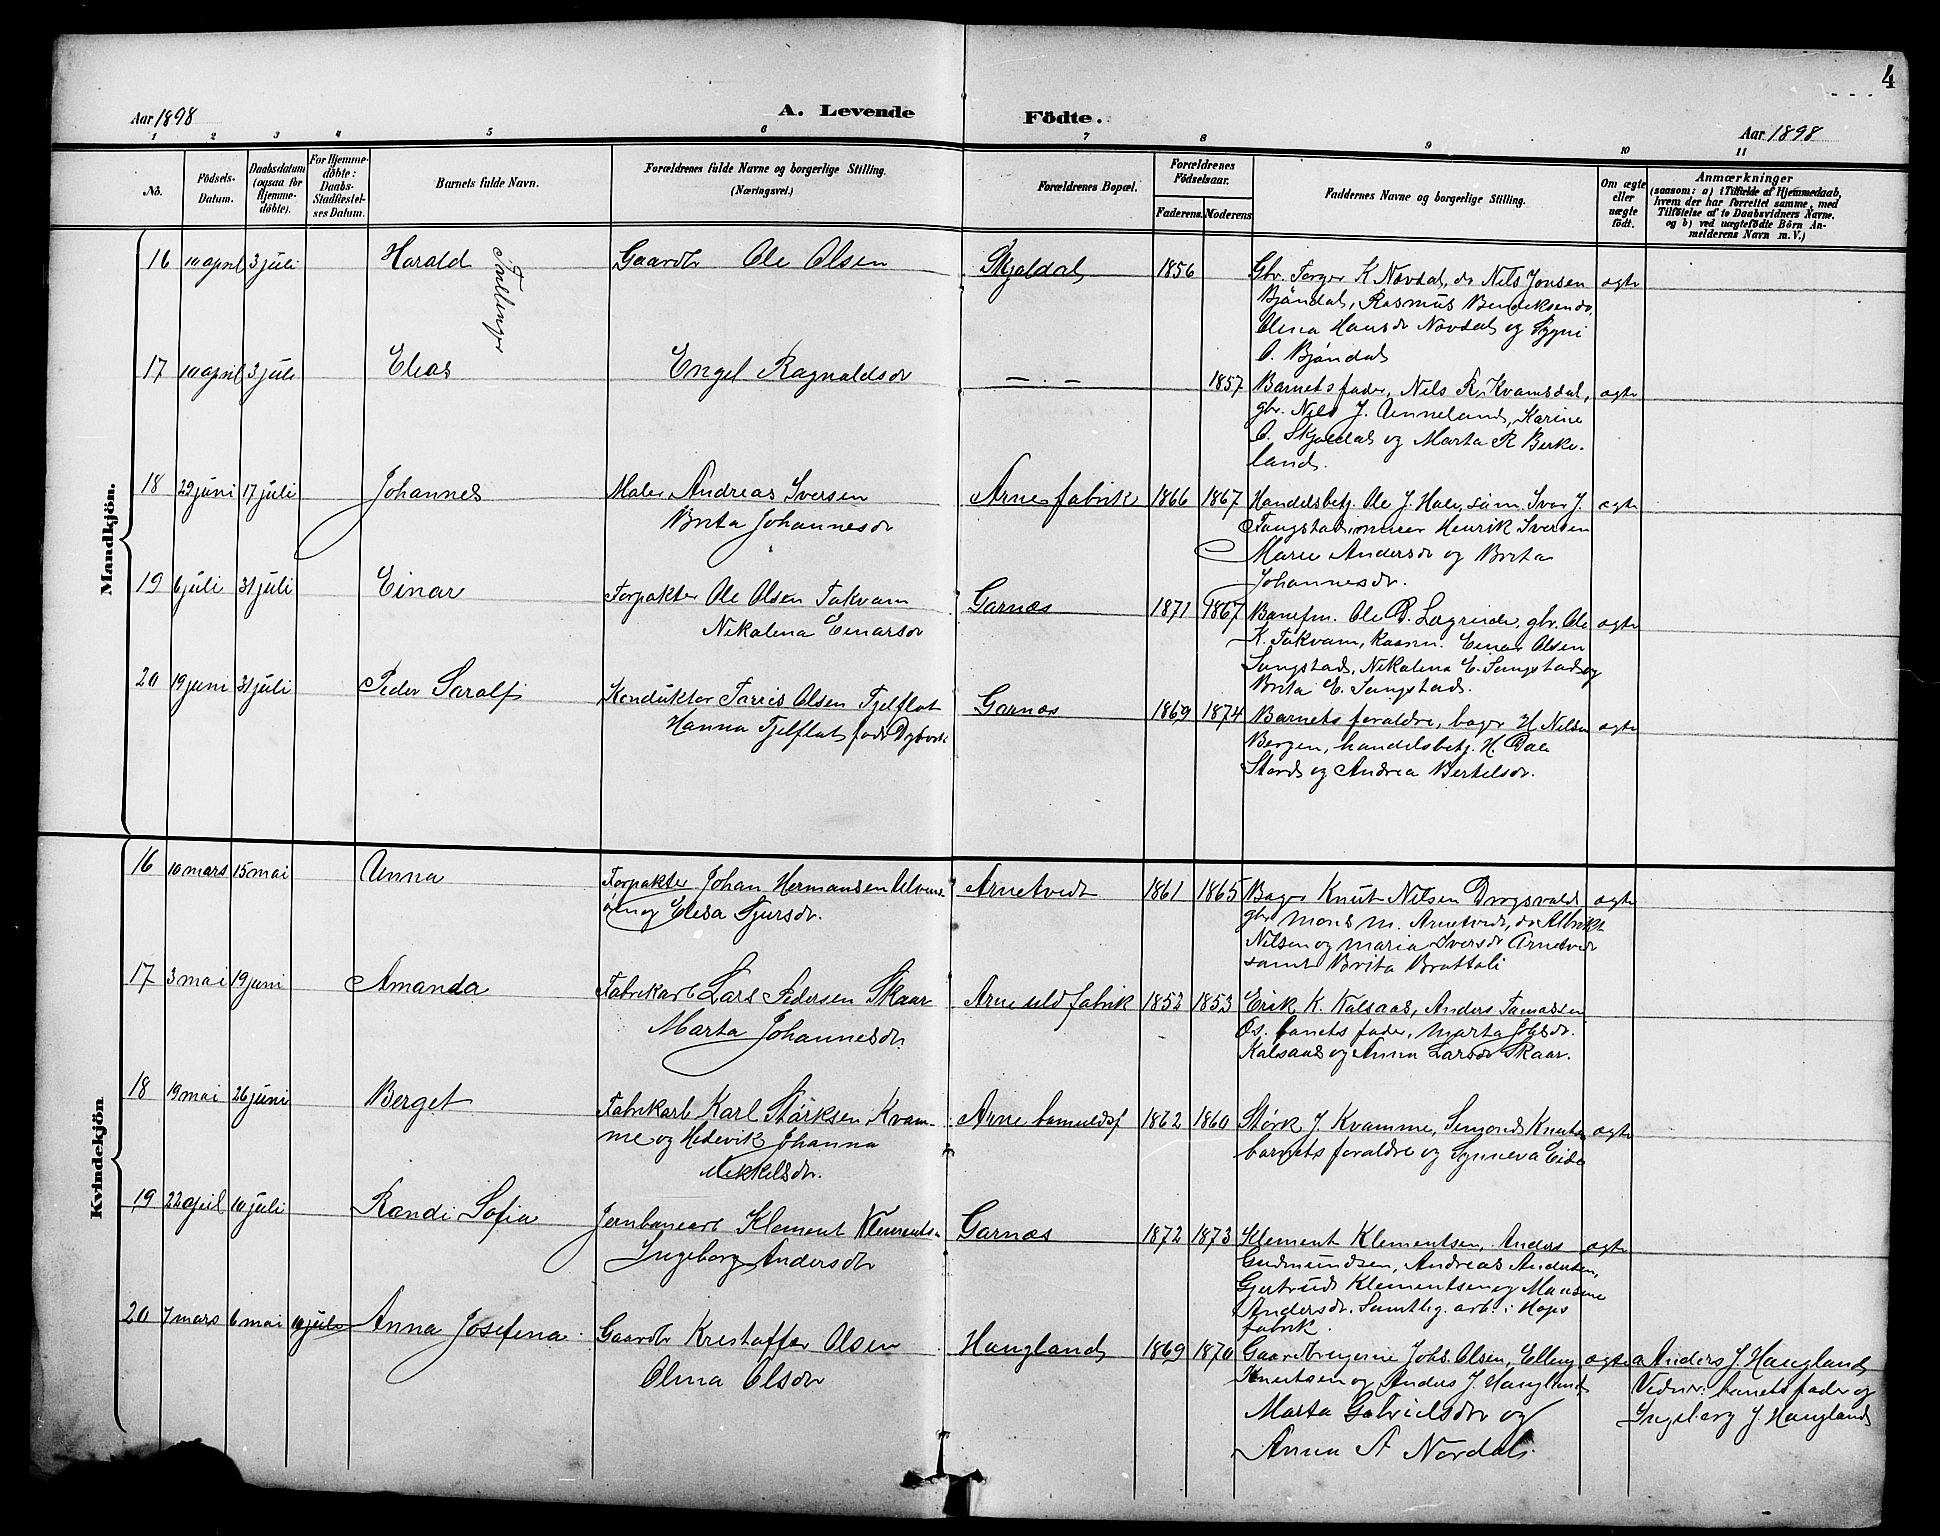 4
Aar 1898
A. Levende
Födte.
Aar 1898
1 2 3 4 5 6 7 8 9 10 11
No.
Födsels-
Datum.
Daabsdatum
(ogsaa for
Hjemme-
döbte).
For Hjemme-
döbte:
Daabs-
Stadfæstel-
ses Datum.
Barnets fulde Navn.
Forældrenes fulde Navne og borgerlige Stilling.
(Næringsvei.)
Forældrenes Bopæl.
Forældrenes
Födselsaar.
Faderens.
Moderens
Faddernes Navne og borgerlige Stilling.
Om ægte
eller
uægte
födt.
Anmærkninger
(saasom: a) i Tilfælde af Hjemmedaab,
hvem der har forrettet samme, med
Tilföielse af to Daabsvidners Navne.
og b) ved uægtefödte Börn An-
melderens Navn m. V.)
Mandkjön.
16 10 april 3 juli Harald Gaardbr Ole Olsen Skjoldal 1856
Tvillinger
Gbr. Torger K Novdal, do Nils Jonsen
Bjöndal, Rasmus
Olina Hansdr Novdal og
O. Bjöndal
ægte
17 10 april 3 juli Elias Engel Ragnaldsdr — . — 1857
Barnets fader, Nils R. Kvamsdal,
gbr. Nils J. Unneland, Karine
O. Skjoldal og Marta R Berke-
land.
ægte
18 29 juni 17 juli Johannes Maler Andreas Iversen
Brita Johannesdr
Arne fabrik 1866 1867
Handelsbetj. Ole J. Hole, Ivar J.
murer Henrik Iversen
Marie Andersdr og Brita
Johannesdr.
ægte
19 6 juli 31 juli Einar Forpakter Ole Olsen Takvam
Nikolina Einarsdr
Garnæs 1871 1867
Banefm. Ole D. Lægreide, gbr. Ole
K. Takvam, Einar Olsen
Songstad, Nikolina E. Songstad og
Brita E. Songstad.
ægte
20 19 juni 31 juli Peder Saralf Konduktör Olsen Fjelflot
Hanna Fjelflot
Garnæs 1869 1874
Barnets foraldre, bager H. Nilsen
Bergen, handelsbetj. H. Dale
Stord og Andrea Bertelsdr.
ægte
Kvindekjön
16 10 mars 15 mai Anna Forpakter Johan Hermansen
og Elisa Sjursdr.
Arnetvedt 1861 1865
Bager Knut Nilsen
gbr Mons M. Arnetvedt, do Albrikt
Nilsen og Maria Iversdr Arnetvedt
samt Brita Brattali
ægte
17 3 mai 19 juni Amanda Fabrikarb Lars Pedersen Skaar
Marta Johannesdr.
Arne uldfabrik 1852 1853
Erik K. Kalsaas, Anders Tomassen
Os. barnets fader, Marta Johsdr.
Kalsaas og Anna Larsdr Skaar.
18 19 mai 26 juni Berget Fabrikarb Karl Störksen Kvam-
me og Hedevik Johanna
Mikkelsdr.
Arne bomuldsf 1862 1860
Störk J. Kvamme, Simond Knutsen
barnets foraldre og Synneva Eide
ægte
19 22 april 10 juli Randi Sofia Jernbanearb Klement Klements-
Ingeborg Andersdr
Garnæs 1872 1873
Klement Klementsen, Anders
Gudmundsen, Andreas Andersen,
Gjertrud Klementsen og
Andersdr. Samtlig. arb. i Hops
fabrik.
ægte
20 7 mars 6 mai 10 juli Anna Josefina Gaardbr Kristoffer Olsen
Olina Olsdr
Haugland 1869 1870
Gaardbrugerne Johs. Olsen, Elling
Knutsen og Anders J. Haugland
Marta Gabrielsdr og
Anna A Nordal.
ægte
a Anders J. Haugland
Vidner: barnets fader og
Ingeborg J. Haugland